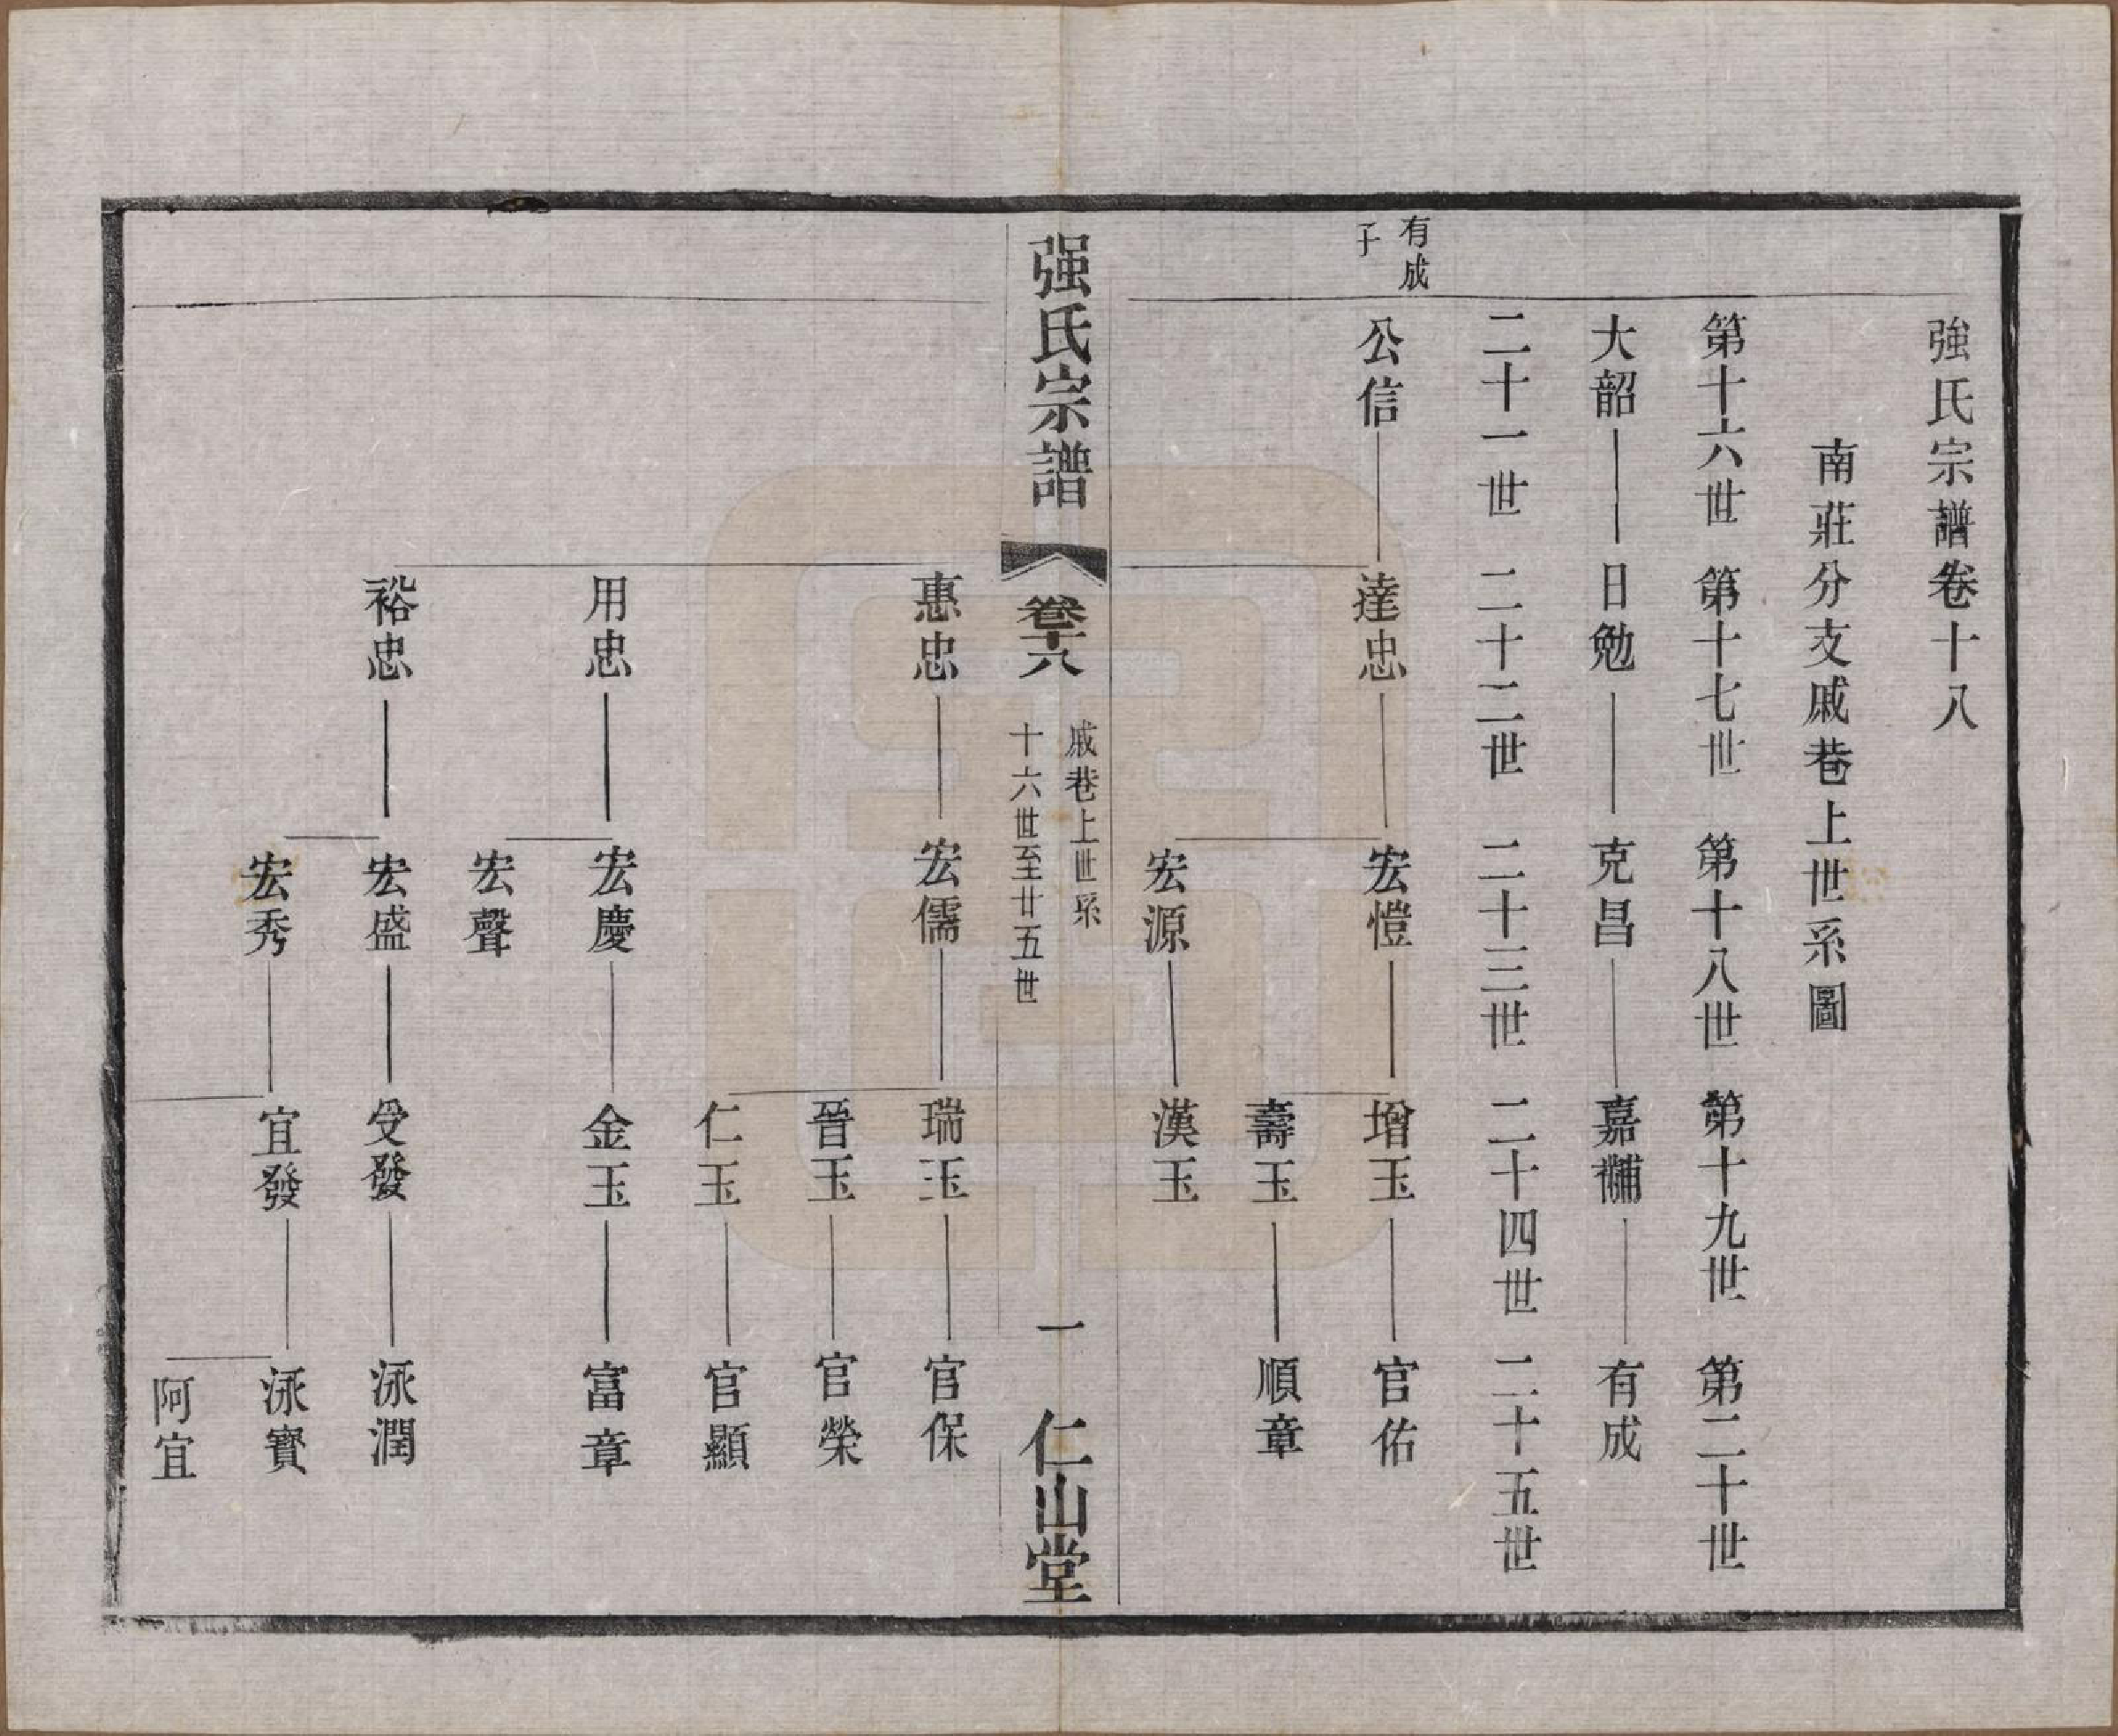 強氏宗譜卷十八
南莊分支戚巷上世系圖
第十六世 第十七世 第十八世 第十九世 第二十世
大韶 日勉 克昌 嘉黼 有成
二十一世 二十二世 二十三世 二十四世 二十五世
有成子
公信 達忠 宏愷 增玉 官佑
壽玉 順章
宏源 漢玉
强氏宗譜 卷十八 戚巷上世系 十六世至廿五世 一 仁山堂
惠忠 宏儒 瑞玉 官保
晉玉 官榮
仁玉 官顯
用忠 宏慶 金玉 富章
宏聲
裕忠 宏盛 受發 泳潤
宏秀 宜發 泳寶
阿宜